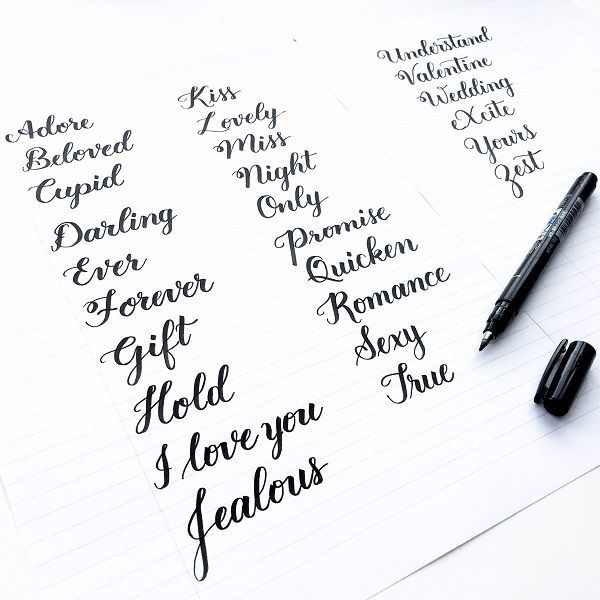 Adore
Beloved
Cupid
Darling
Ever
Forever
Gift
Hold
I love you
Jealous
Kiss
Lovely
Miss
Night
Only
Promise
Quicken
Romance
Sexy
True
Understand
Valentine
Wedding
eXcite
Yours
Zest